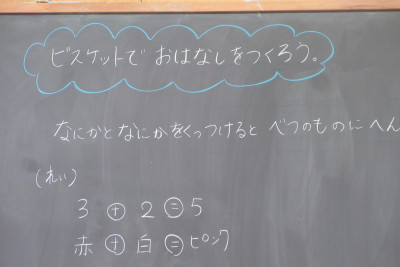 ビスケットで おはなしをつくろう。
なにかとなにかをくっつけると べつのものにへん
(れい)
3 + 2 = 5
赤 + 白 = ピンク